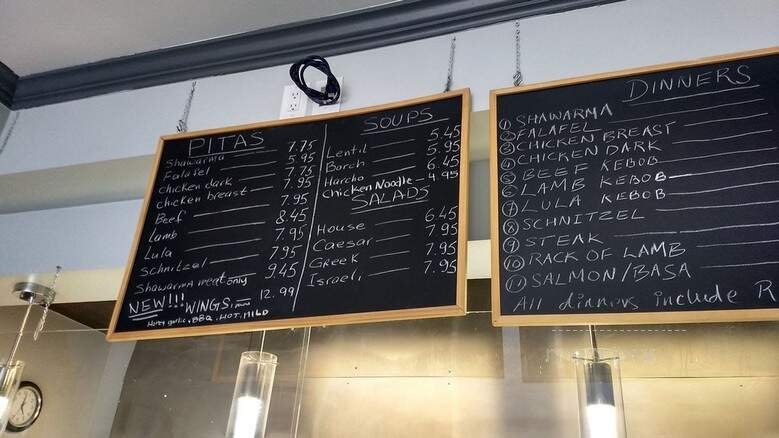 PITAS
Shawarma 7.75
Falafel 5.95
chicken dark 7.75
chicken breast 7.95
Beef 7.95
Lamb 8.45
Lula 7.95
Schnitzel 7.95
Shawarma meat only 9.45
NEW!!! WINGS 12.99
Honey garlic, BBQ, HOT, MILD
SOUPS
Lentil 5.45
Borch 5.95
Harcho 6.45
Chicken Noodle 4.95
SALADS
House 6.45
Caesar 7.95
Greek 7.95
Israeli 7.95
DINNERS
1 SHAWARMA
2 FALAFEL
3 CHICKEN BREAST
4 CHICKEN DARK
5 BEEF KEBOB
6 LAMB KEBOB
7 LULA KEBOB
8 SCHNITZEL
9 STEAK
10 RACK OF LAMB
11 SALMON/BASA
All dinners include R